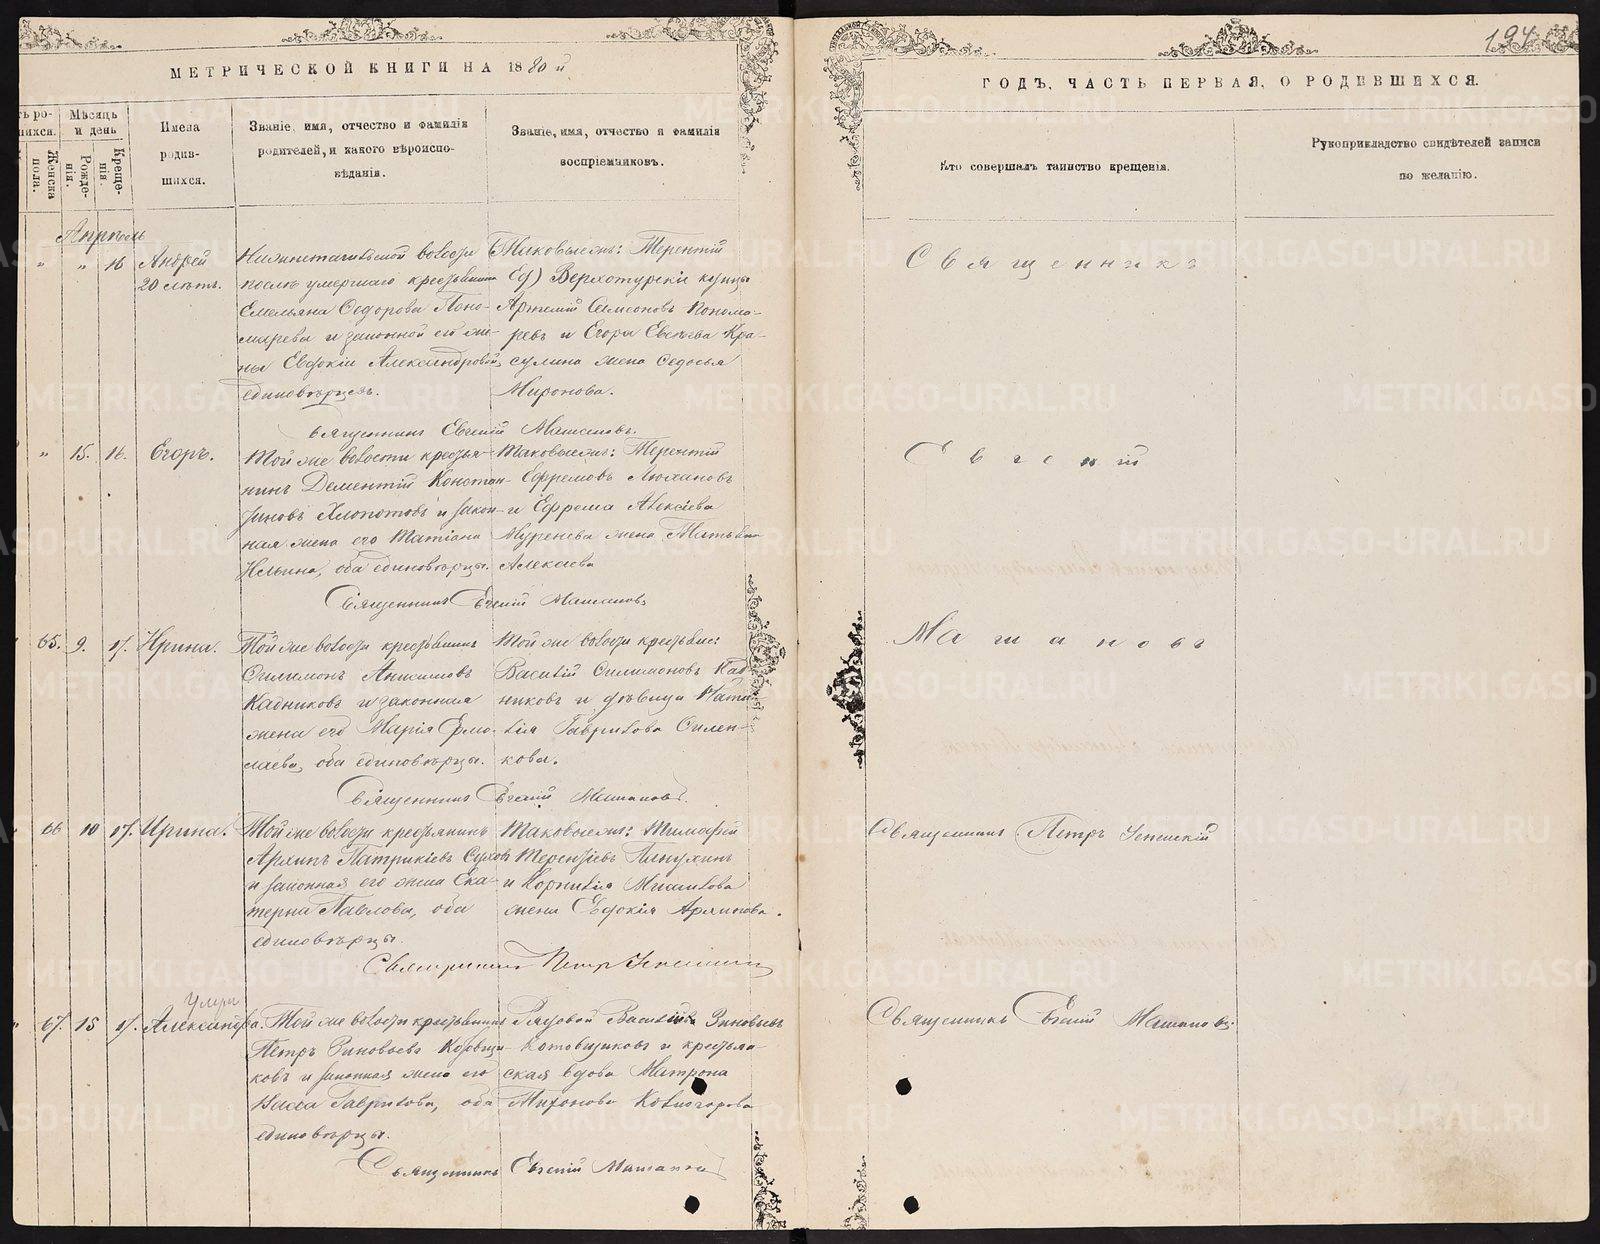 МЕТРИЧЕСКОЙ КНИГИ НА 1880 й
ть ро-
шихся.
Мѣсяцъ
и день
Женска
пола.
Рожде-
нія.
Креще-
нія.
Имена
родив-
шихся.
Званіе, имя, отчество и фамилія
родителей, и какого вѣроиспо-
вѣданія.
Званіе, имя, отчество и фамилія
воспріемниковъ.
Апрѣль
" " 16 Андрей
20 лѣтъ.
Нижнетагильской волости
послѣ умершаго крестьянина
Емельяна Федорова Поно-
марева и законной его же-
ны Евдокіи Александровой,
единовѣрцевъ.
Таковыежъ: Терентій
Верхотурскій купецъ
Артемій Самсоновъ Понома-
ревъ и Егора Евсѣева Кра-
сулина жена Федосья
Миронова.
Священникъ Евгеній Машановъ.
" 15. 16. Егоръ.
Той же волости крестья-
нинъ Дементій Констан-
тиновъ Хлопотовъ и закон-
ная жена его Татіана
Ильина, оба единовѣрцы.
Таковыежъ: Терентій
Ефремовъ Люхановъ
и Ефрема Алексіева
жена
Алексіева
Священникъ Евгеній Машановъ
65. 9. 17. Ирина.
Той же волости крестьянинъ
Филимонъ Анисимовъ
Кадниковъ и законная
жена его Марія Ермо-
лаева, оба единовѣрцы.
Той же волости крестьяне:
Василій Филимоновъ Кад-
никовъ и дѣвица Ната-
лія Гаврилова Филен-
кова.
Священникъ Евгеній Машановъ.
66 10 17. Ирина.
Той же волости крестьянинъ
Архипъ Патрикіевъ Суховъ
и законная его жена Ека-
терина Павлова, оба
единовѣрцы.
Таковыежъ: Тимофей
Терентіевъ Пинухинъ
и Корнилія
жена Евдокія Архипова.
Священникъ Петръ
Умерла
67. 15 17. Александра.
Той же волости крестьянинъ
Петръ Зиновьевъ Котовщи-
ковъ и законная жена его
Васса Гаврилова, оба
единовѣрцы.
Рядовой Василій Зиновьевъ
Котовщиковъ и крестьян-
ская вдова Матрона
Тихонова
Священникъ Евгеній Машановъ
194
ГОДЪ, ЧАСТЬ ПЕРВАЯ, О РОДИВШИХСЯ.
Кто совершалъ таинство крещенія.
Рукоприкладство свидѣтелей записи
по желанію.
Священникъ
Евгеній
Машановъ
Священникъ Петръ
Священникъ Евгеній Машановъ.
METRIKI.GASO-URAL.RU